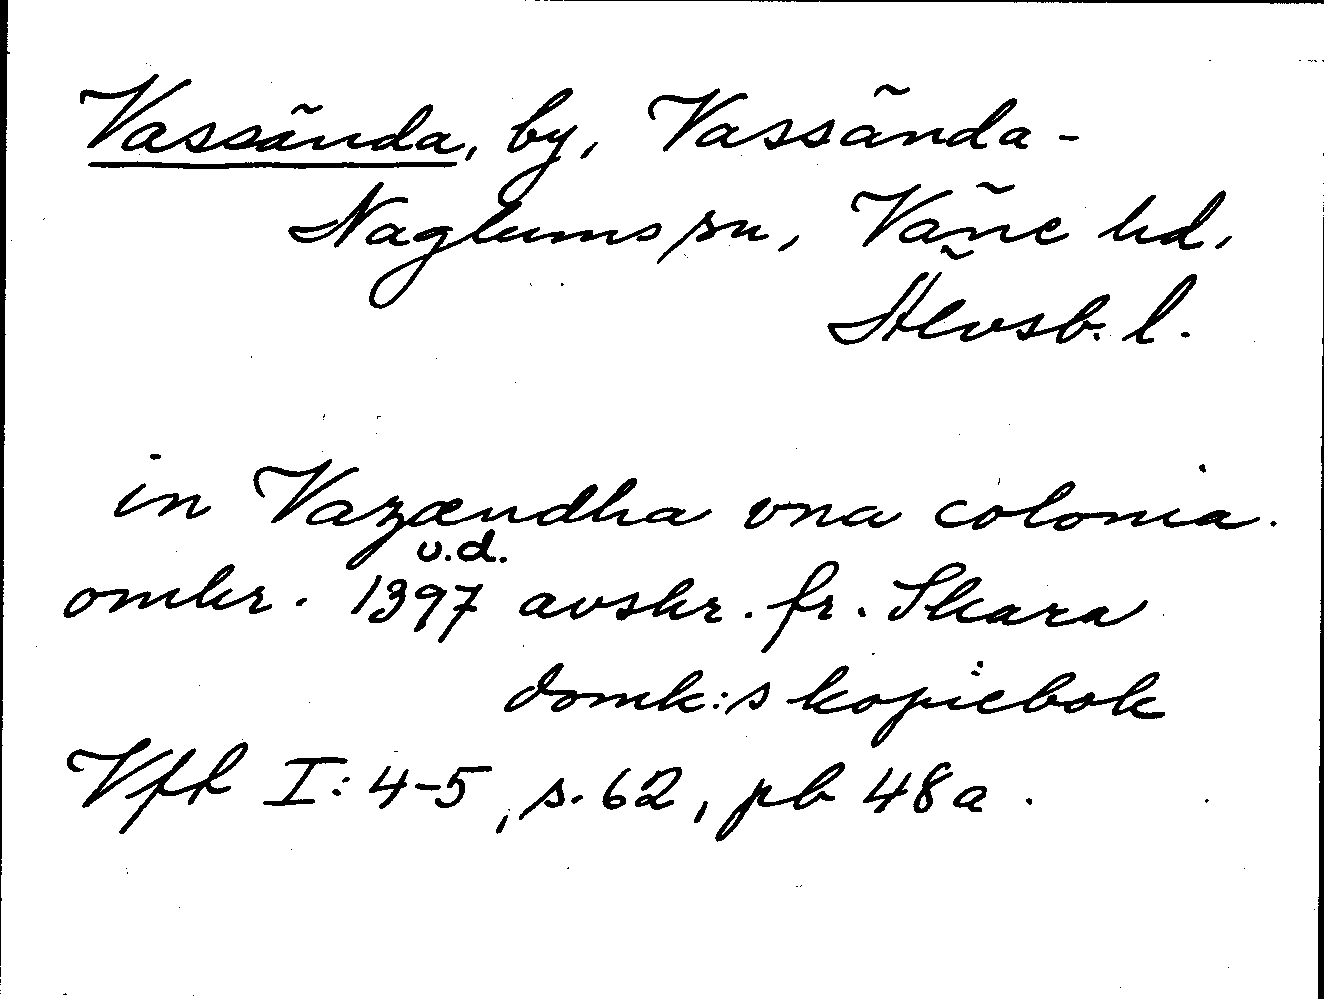 Vassända, by, Vassända-
Naglums sn, Väne hd,
Älvsb. l.
in Vazændha vna colonia.
omkr. 1397 u.d. avskr. fr. Skara
domk:s kopiebok
Vfh I: 4-5, s. 62, pb 48a.